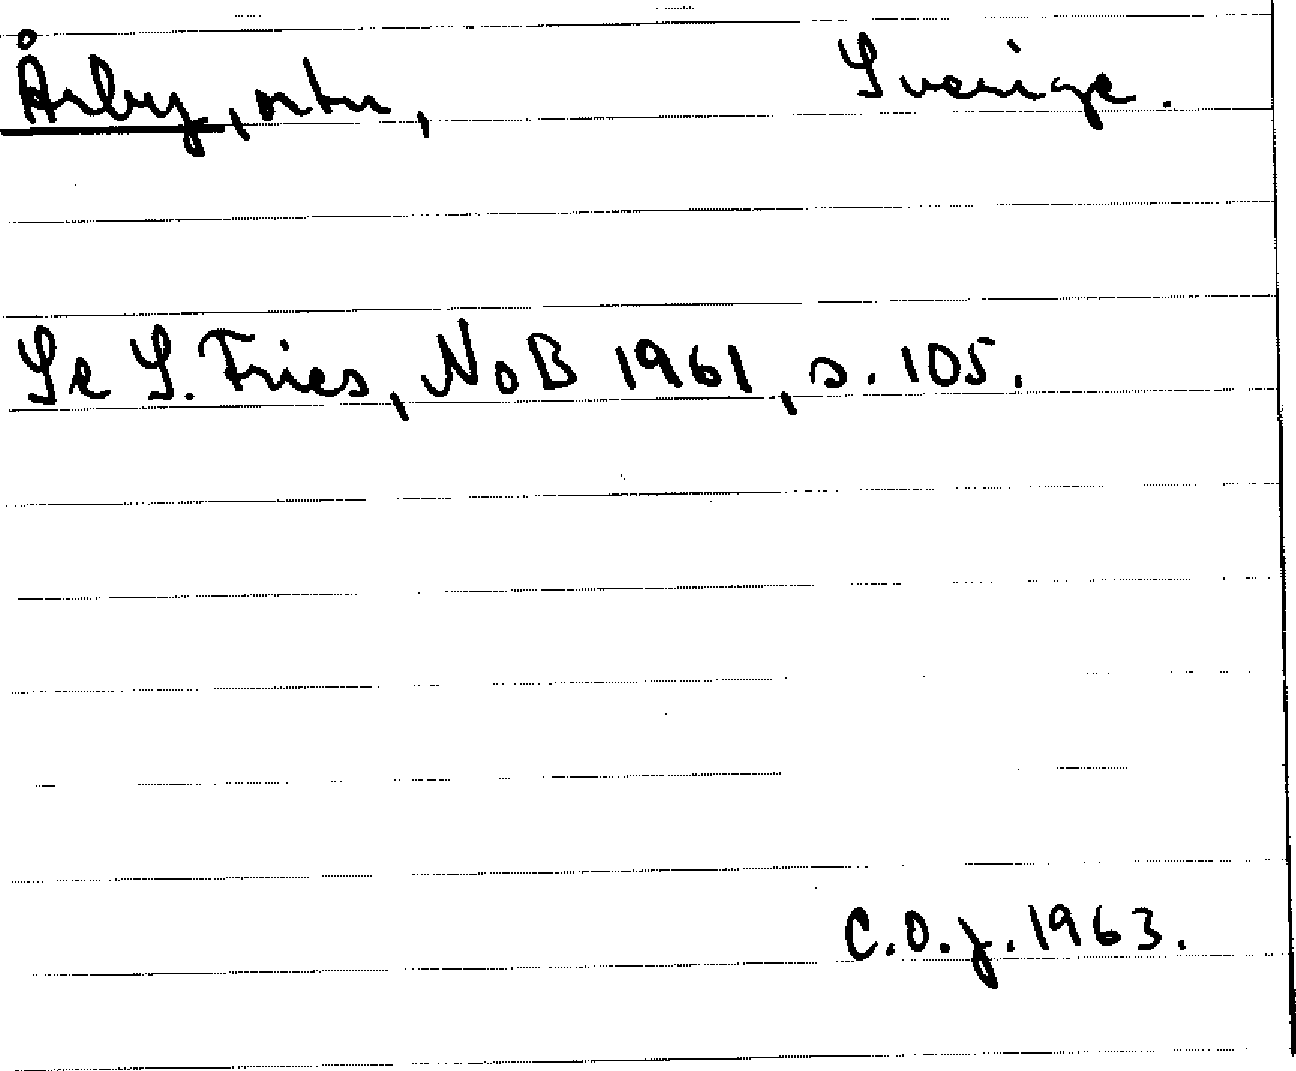 Årby, ortn, Sverige.
Se S. Fries, NoB 1961, s. 105.
C.O.J. 1963.